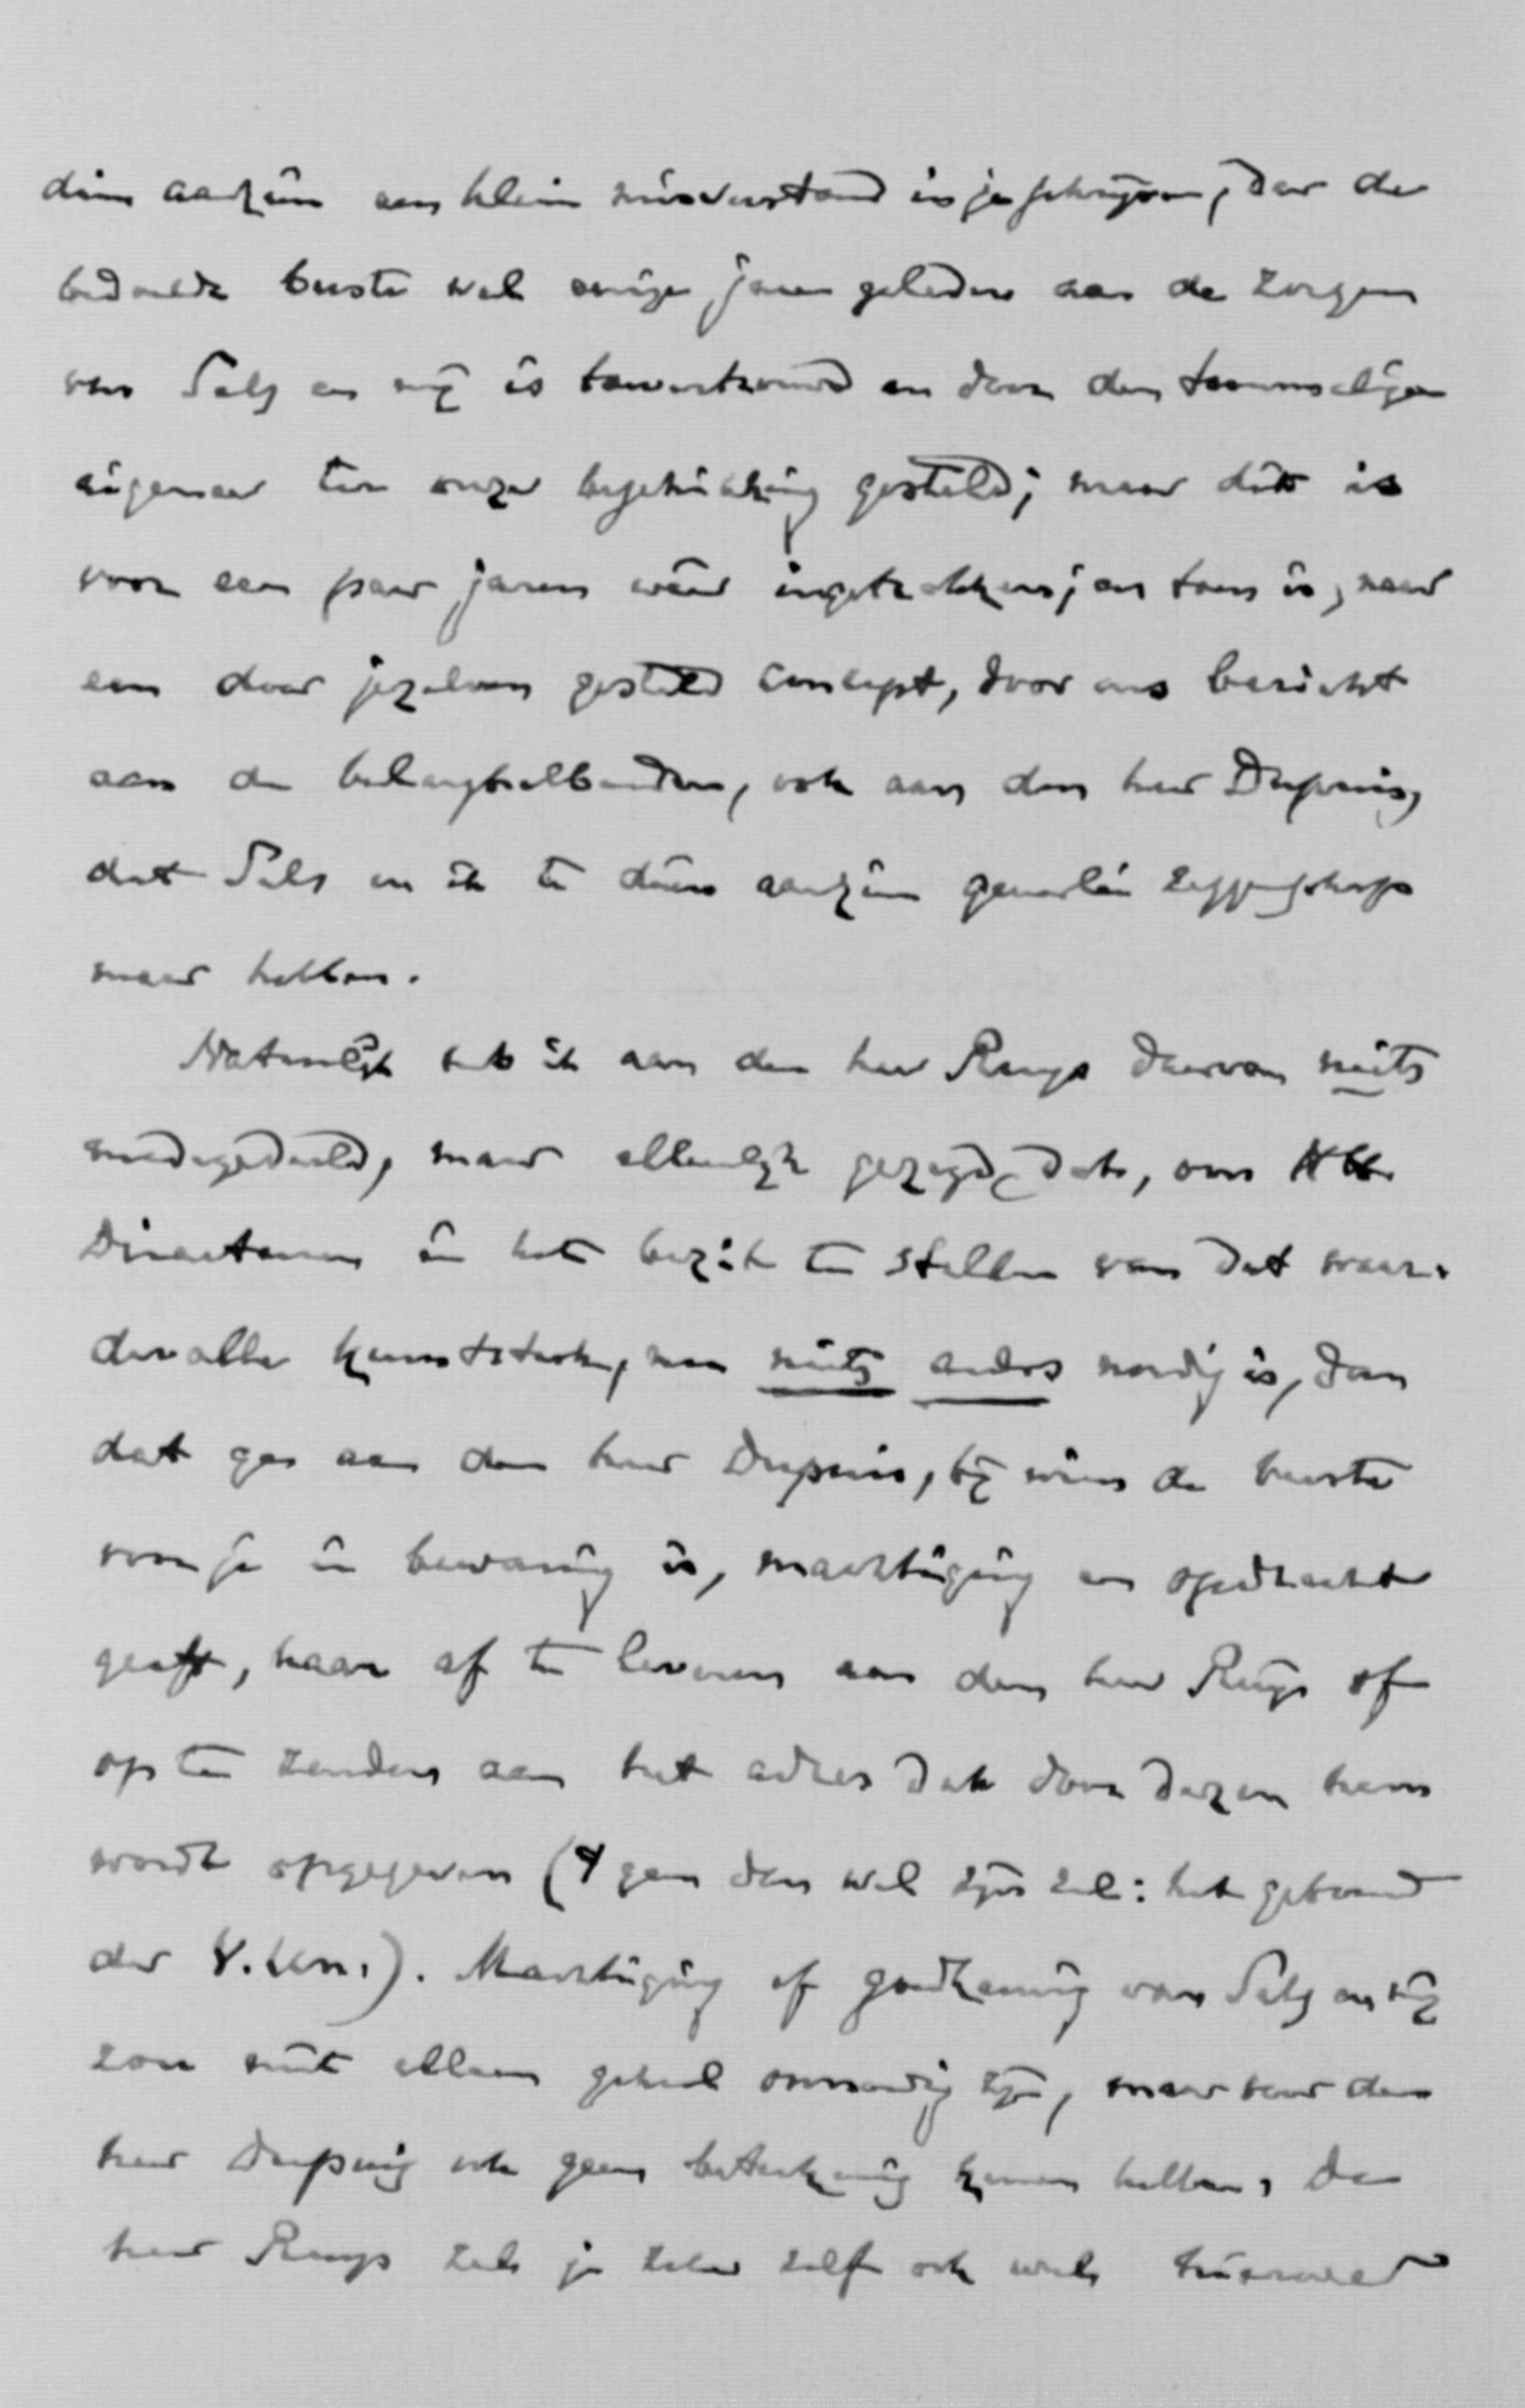 dien aanzien een klein misverstand is geslopen, daar de
bedoelde buste wel eenige jaren geleden aan de zorgen
van Salz en mij is toevertrouwd en door den toenmaligen
eigenaar ter onzer beschikking gesteld; maar dit is
voor een paar jaren weer ingetrokken; en toen is, naar
een door jezelven gesteld concept, door ons bericht
aan de belanghebbenden, ook aan den heer Dupuis,
dat Salz en ik te dien aanzien generlei zeggingschap
meer hebben.
Natuurlijk heb ik aan den heer Ruys daarvan niets
medegedeeld, maar alleenlijk gezegd, dat, om HH
Directeuren in het bezit te stellen van dat waar-
devolle kunststuk, nu niets anders noodig is, dan
dat gij aan den heer Dupuis, bij wien de buste
voor je in bewaring is, machtiging en opdracht
geeft, haar af te leveren aan den heer Ruys of
op te zenden aan het adres dat door dezen hem
wordt opgegeven ('t geen dan wel zijn zal: het gebouw
der V. Un.). Machtiging of goedkeuring van Salz en mij
zou niet alleen geheel onnoodig zijn, maar voor den
heer Dupuis ook geen beteekenis kunnen hebben. De
heer Ruys zal je zeker zelf ook wel hierover